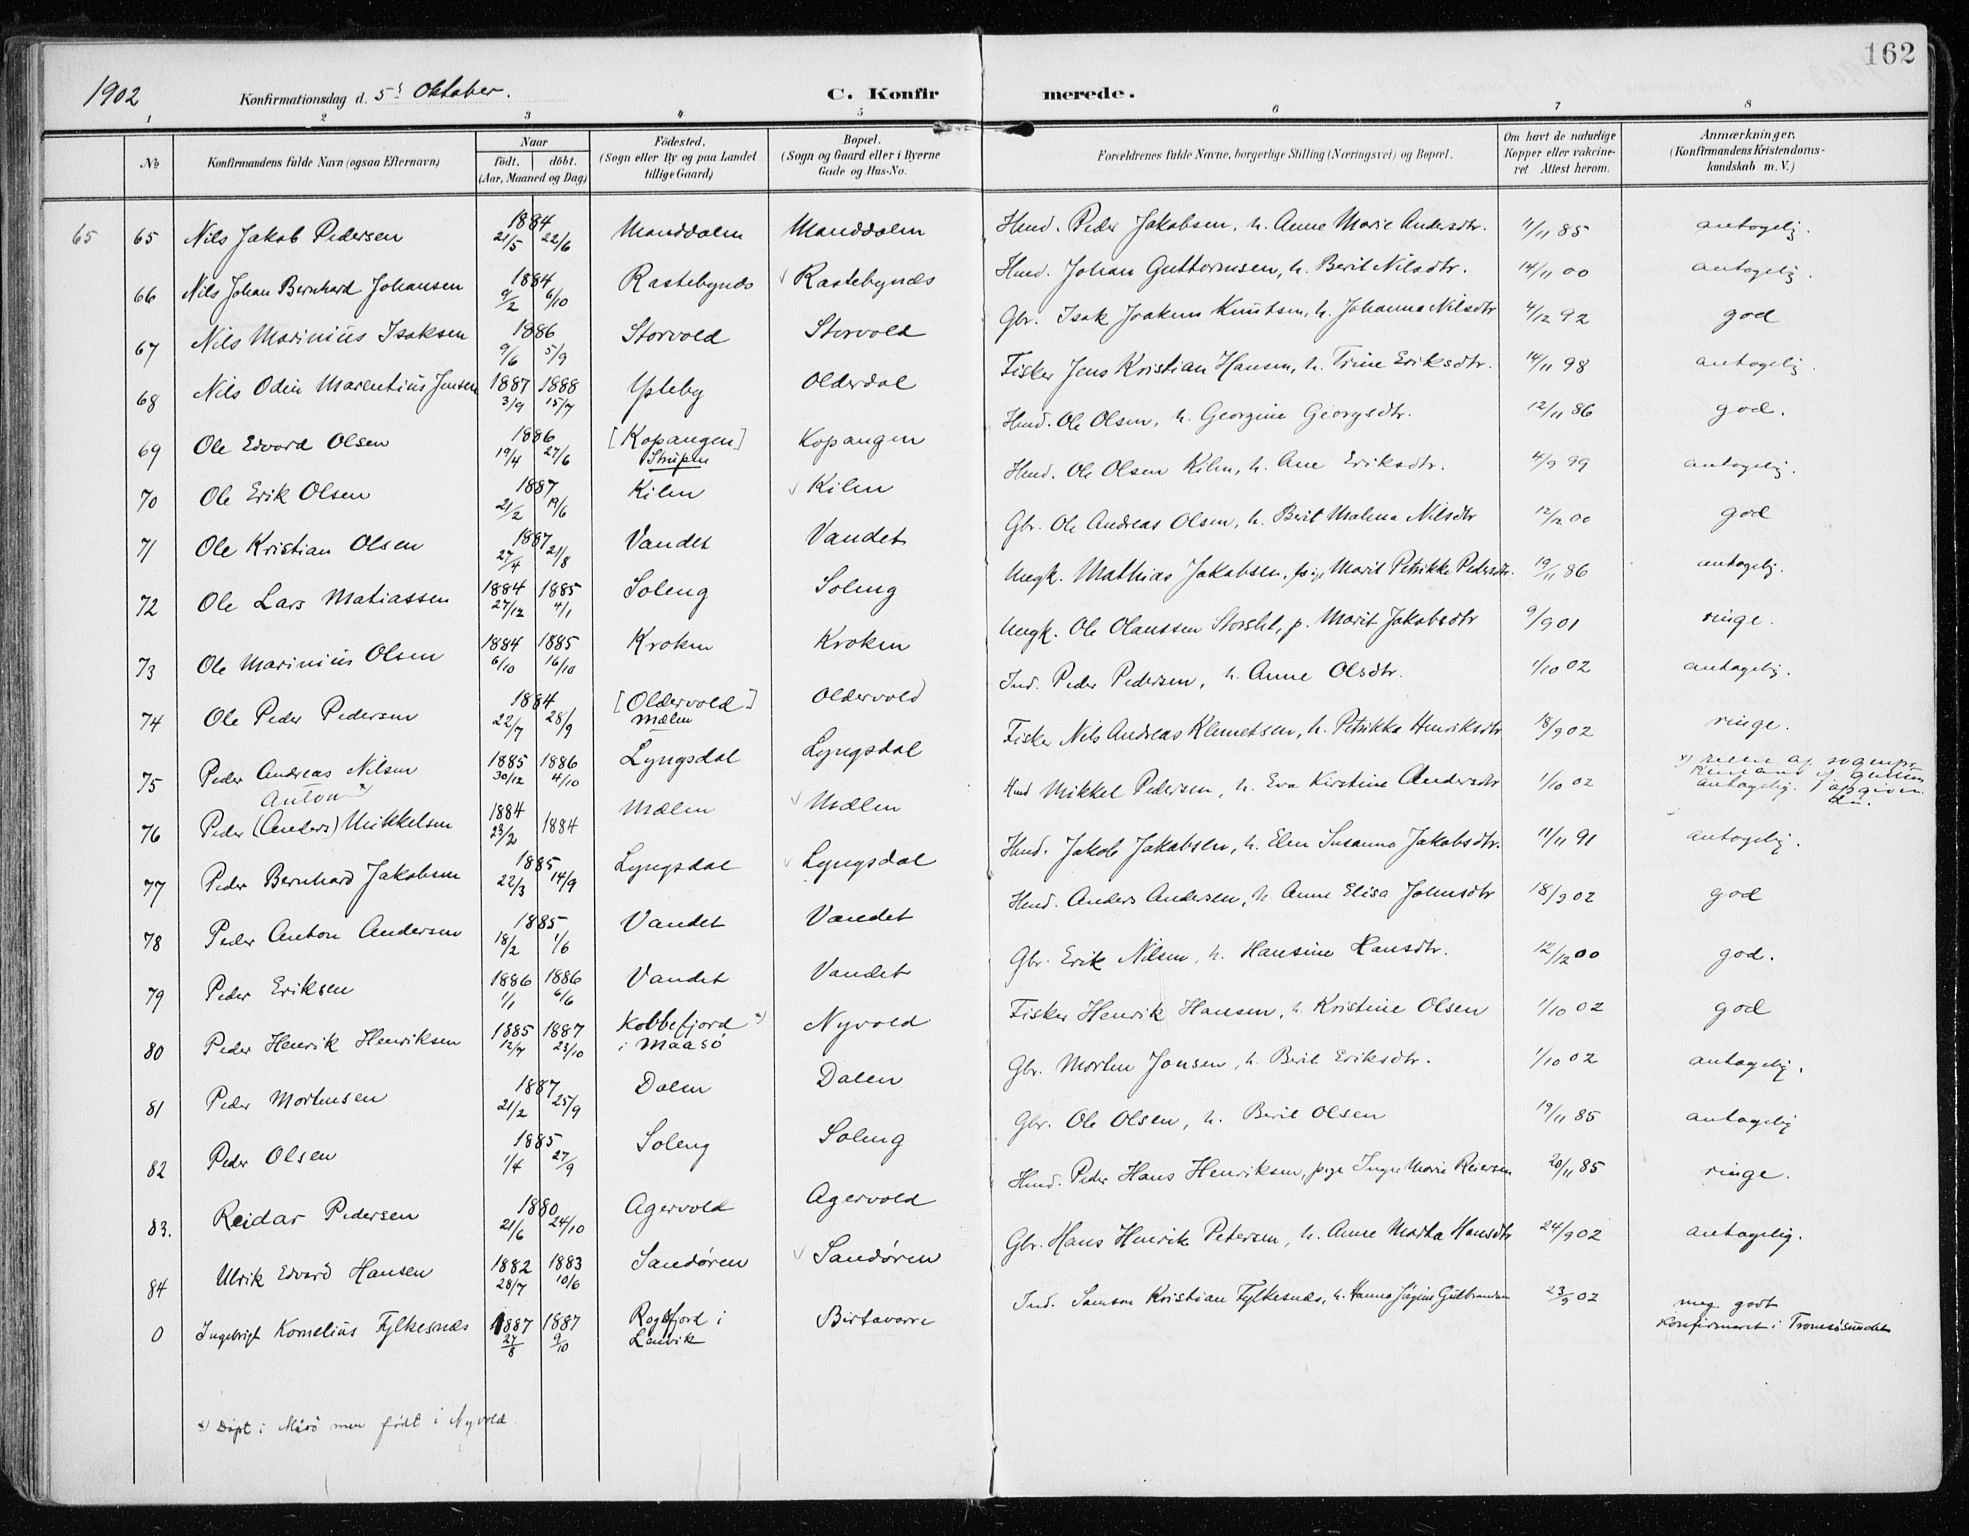 162
1902 Konfirmationsdag d. 5' Oktober. C. Konfirmerede.
1 2 3 4 5 6 7 8
No Konfirmandens fulde Navn (ogsaa Efternavn) Naar født. døbt. (Aar, Maaned og Dag) Fødested. (Sogn eller By og paa Landet tillige Gaard) Bopæl. (Sogn og Gaard eller i Byerne Gade og Hus-No. Forældrenes fulde Navne, borgerlige Stilling (Næringsvei) og Bopæl. Om havt de naturlige Kopper eller vakcineret Attest herom. Anmærkninger. (Konfirmandens Kristendomskundskab m. V.)
65 65 Nils Jakob Pedersen 1884 21/5 22/6 Manddalen Manddalen Hmd. Peder Jakobsen, h. Anne Marie Andersdtr. 11/11 85 antagelig.
66 Nils Johan Bernhard Johansen 1884 9/2 6/10 Rastebynes Rastebynes Hmd. Johan Guttormsen, h. Berit Nilsdtr. 14/11 00 antagelig.
67 Nils Marinius Isaksen 1886 9/6 5/9 Storvold Storvold Gbr. Isak Joakim Knutsen, h. Johanna Nilsdtr 4/12 92 god
68 Nils Odin Marentius Jensen 1887 3/9 1888 15/7 Ysteby Olderdal Fisker Jens Kristian Hansen, h. Trine Eriksdtr. 14/11 98 antagelig.
69 Ole Edvard Olsen 1886 19/4 27/6 [Kopangen] Strupen Kopangen Hmd. Ole Olsen, h. Georgine Georgsdtr. 12/11 86 god.
70 Ole Erik Olsen 1887 21/2 19/6 Kilen Kilen Hmd. Ole Olsen Kilen, h. Ane Eriksdtr. 4/9 99 antagelig.
71 Ole Kristian Olsen 1887 27/4 21/8 Vandet Vandet Gbr. Ole Andreas Olsen, h. Berit Malena Nilsdtr 12/12 00 god
72 Ole Lars Matiassen 1884 27/12 1885 4/1 Soleng Soleng Ungk. Mathias Jakobsen, pige Marit Petrikke Pedersdtr. 19/11 86 antagelig.
73 Ole Marinius Olsen 1884 6/10 1885 16/10 Kroken Kroken Ungk. Ole Olaussen Storslet, p. Marit Jakobsdtr 9/9 01 ringe.
74 Ole Peder Pedersen 1884 22/7 28/9 [Oldervold] Mælen Oldervold Ind. Peder Pedersen, h. Anne Olsdtr. 1/10 02 antagelig.
75 Peder Andreas Nilsen 1885 30/12 1886 4/10 Lyngsdal Lyngsdal Fisker Nils Andreas Klemetsen, h. Petrikka Henriksdtr 18/9 02 ringe.
76 Peder (Anders) Anton x) Mikkelsen 1884 23/2 1884 Mælen Mælen Hmd Mikkel Pedersen, h. Eva Kirstine Andersdtr 1/10 02 antagelig.
77 Peder Bernhard Jakobsen 1885 22/3 14/9 Lyngsdal Lyngsdal Hmd. Jakob Jakobsen, h. Elen Susanna Jakobsdtr. 11/11 91 antagelig.
78 Peder Anton Andersen 1885 18/2 1/6 Vandet Vandet Hmd. Anders Andersen, h. Anne Elisa Johnsdtr 18/9 02 god
79 Peder Eriksen 1886 1/1 1886 6/6 Vandet Vandet Gbr. Erik Nilsen, h. Hansine Hansdtr. 12/12 00 god.
80 Peder Henrik Henriksen 1885 12/7 1887 23/10 Kobbefjord x) i Maasö Nyvold Fisker Henrik Hansen, h. Kristine Olsen 1/10 02 god
81 Peder Mortensen 1887 21/2 25/9 Dalen Dalen Gbr. Morten Jonsen, h. Berit Eriksdtr. 1/10 02 antagelig.
82 Peder Olsen 1885 1/4 27/9 Soleng Soleng Gbr. Ole Olsen, h. Berit Olsen 19/11 85 antagelig
83. Reidar Pedersen 1880 21/6 24/10 Agervold Agervold Hmd. Peder Hans Henriksen, pige Inger Marie Reiersen 20/11 85 ringe.
84 Ulrik Edvard Hansen 1882 28/7 1883 10/6 Sandøren Sandøren Gbr. Hans Henrik Petersen, h. Anne Marta Hansdtr 24/9 02 antagelig.
0 Ingebrigt Kornelius Fylkesnes 1887 27/8 1887 9/10 Rogsfjord i Lenvik Birtavarre Ind. Samson Kristian Fylkesnes, h. Hanna Jørgine Gulbrandsen 23/9 02 meg. godt Konfirmeret i Tromsösundet
x) Döpt i Måsö men födt i Nyvold